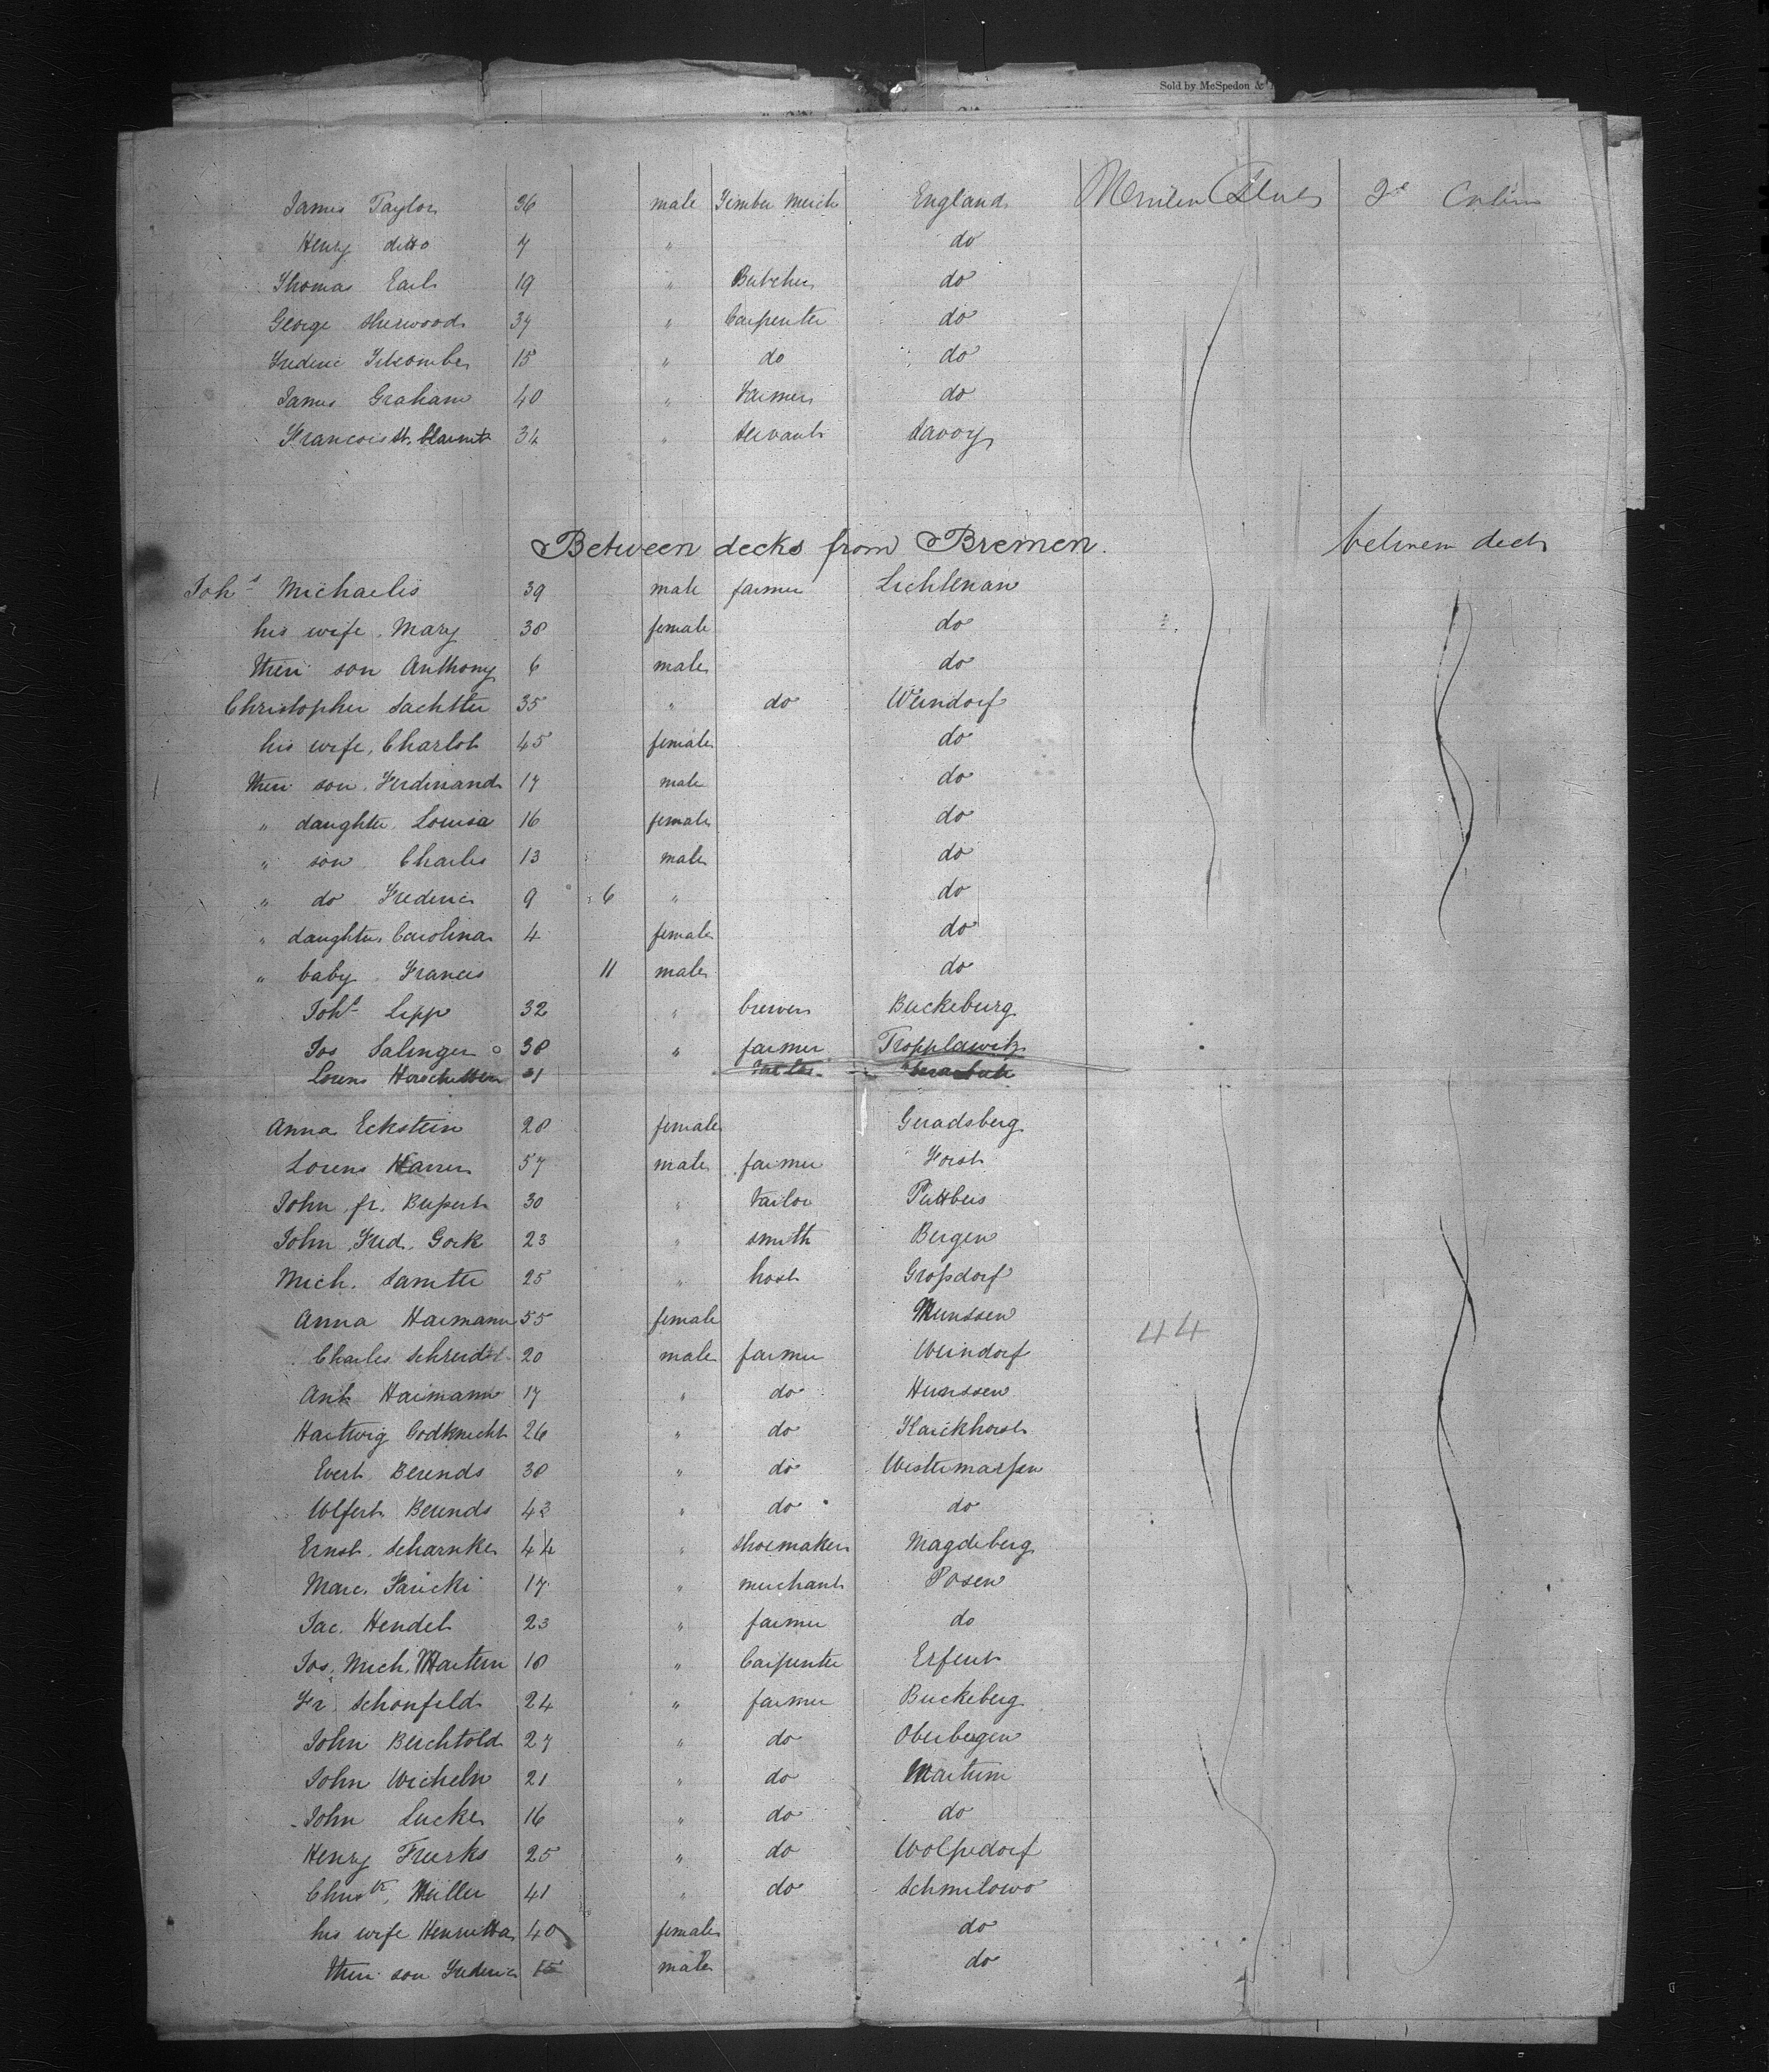 Sold by McSpedon &
James Taylor 36 male Timber Merch England 2d Cabin
Henry ditto 7 " do
Thomas Earl 19 " Butcher do
George Sherwood 37 " Carpenter do
Frederic 15 " do do
James Graham 40 " Farmer do
Francois 34 " Servant Savoy
Between decks from Bremen. between deck
Joh.s Michaelis 39 male farmer Lichtenau
his wife, Mary 38 female do
their son Anthony 6 male do
Christopher Sachtter 35 " do Weindorf
his wife, Charlot 45 female do
their son, Ferdinand 17 male do
" daughter, Louisa 16 female do
" son, Charles 13 male do
" do Frederic 9 6 " do
" daughter, Carolina 4 female do
" baby, Francis 11 male do
Joh.s Lipp 32 " brewer Buckeburg
Jos Salinger 38 " farmer Tropplowitz
Lorens
Anna Eckstein 28 female Geradsberg
Lorens Harrer 57 male farmer Horst
John fr. Bupert 30 " tailor Puttbus
John Fred. Gork 23 " smith Bergen
Mich. Samtte 25 " host Grossdorf
Anna Harmann 55 female Hunssen
Charles 20 male farmer Weindorf
Ant Harmann 17 " do Hunssen
Hartwig Codknecht 26 " do Karckhorst
Evert Berends 38 " do Westermarsen
Wlfert Berends 43 " do do
Ernst Scharnke 44 " shoemaker Magdeberg
Marc. 17 " merchant Posen
Jac. Hendel 23 " farmer do
Jos. Mich. Martern 18 " Carpenter Erfurt
Fr. Schonfeld 24 " farmer Buckeberg
John Berchtold 27 " do Oberbergen
John Wicheln 21 " do Martum
John Lucke 16 " do do
Henry Freerks 25 " do Wolpsdorf
Christ. Müller 41 " do Schmilowo
his wife Henrietta 40 female do
their son Frederic 15 male do
44